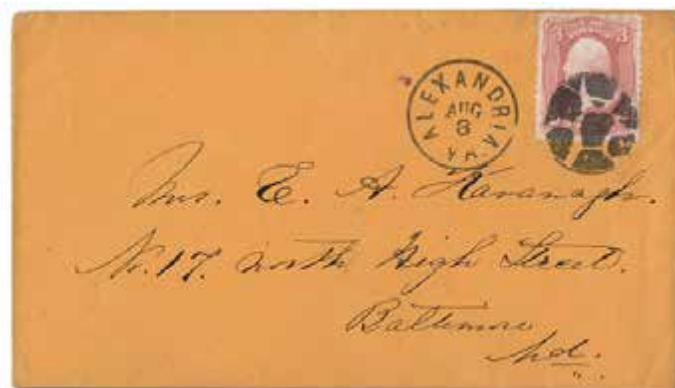 3 3
ALEXANDRIA
AUG
3
VA.
Mrs. E. A. Kavanagh.
No. 17. North High Street.
Baltimore
Md.